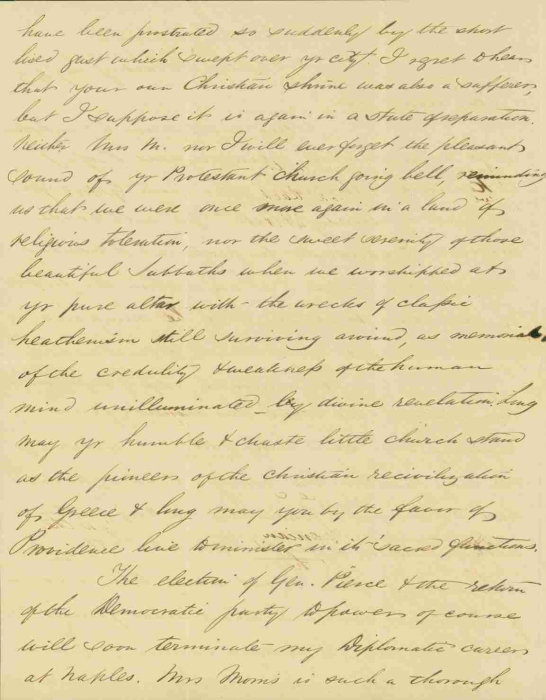 have been prostrated so suddenly by the short
lived gust which swept over yr city. I regret to hear
that your own Christian shrine was also a sufferer,
but I suppose it is again in a state of reparation.
Neither Mrs M. nor I will ever forget the pleasant
sound of yr Protestant Church going bell, reminding
us that we were once more again in a land of
religious toleration, nor the sweet serenity of those
beautiful Sabbaths when we worshipped at
yr pure altar with the wrecks of classic
heathenism still surviving around, as memorials
of the credulity & weakness of the human
mind unilluminated by divine revelation. Long
may yr humble & chaste little church stand
as the pioneers of the Christian recivilization
of Greece & long may you by the favor of
Providence live to minister in its sacred functions.
The election of Gen. Pierce & the return
of the Democratic party to power of course
will soon terminate my Diplomatic career
at Naples. Mrs Morris is such a thorough